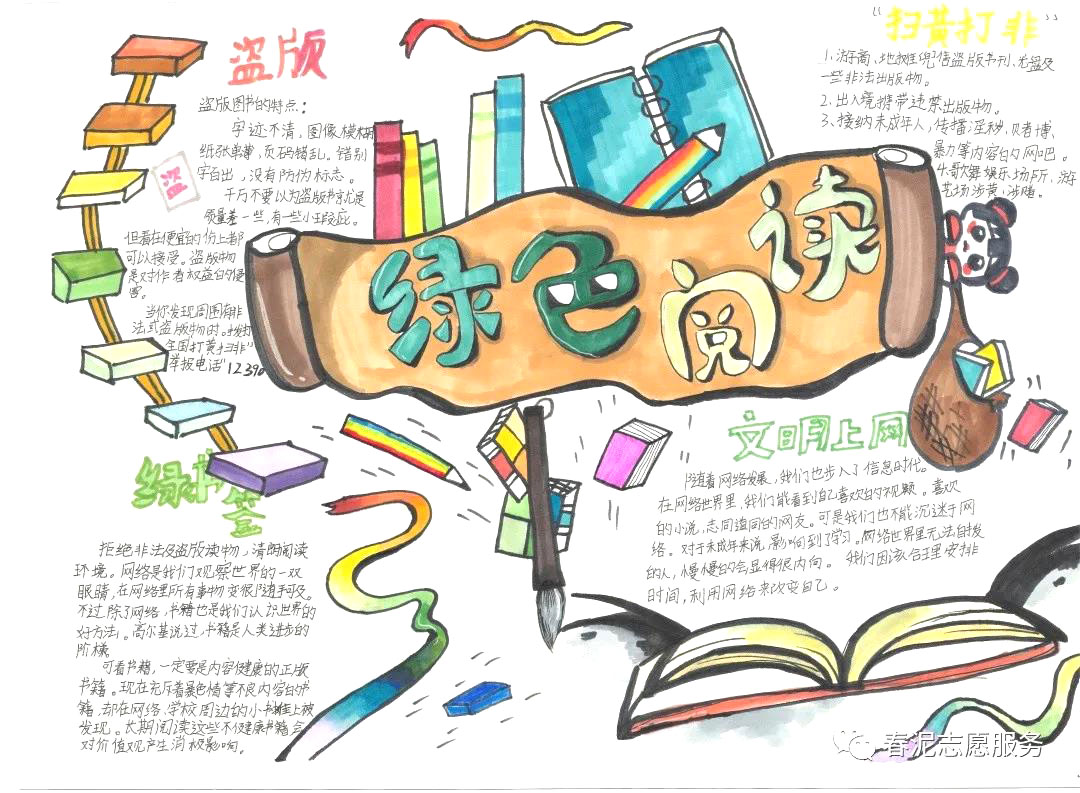 盗版
盗版图书的特点：
字迹不清，图像模糊
纸张单薄，页码错乱。错别
字百出，没有防伪标志。
千万不要以为盗版书就是
质量差一些，有一些小瑕疵。
但看在便宜的份上都
可以接受。盗版物
是对作者权益的侵
害。
当你发现周围有非
法或盗版物时。拨打
全国打黄扫非"
举报电话"12390
盗
绿色阅读
"扫黄打非"
1.游商、地摊兜售盗版书刊、光盘及
一些非法出版物。
2.出入境携带违禁出版物。
3、接纳未成年人，传播淫秽，赌博、
暴力等内容的网吧。
4.歌舞娱乐场所、游
艺场涉黄、涉赌。
文明上网
随着网络发展，我们也步入了信息时代。
在网络世界里，我们能看到自己喜欢的视频。喜欢
的小说，志同道同的网友。可是我们也不能沉迷于网
络。对于未成年来说，影响到了学习。网络世界里无法自拔
的人，慢慢的会显得很内向。我们因该合理安排
时间，利用网络来改变自己。
绿书签
拒绝非法及盗版读物，清朗阅读
环境。网络是我们观察世界的一双
眼睛，在网络里所有事物变很随手可及。
不过，除了网络，书籍也是我们认识世界的
好方法。高尔基说过，书籍是人类进步的
阶梯。
可看书籍，一定要是内容健康的正版
书籍。现在充斥着暴色情等不良内容的书
籍，却在网络、学校周边的小书摊上被
发现。长期阅读这些不健康书籍会
对价值观产生消极影响。
春泥志愿服务